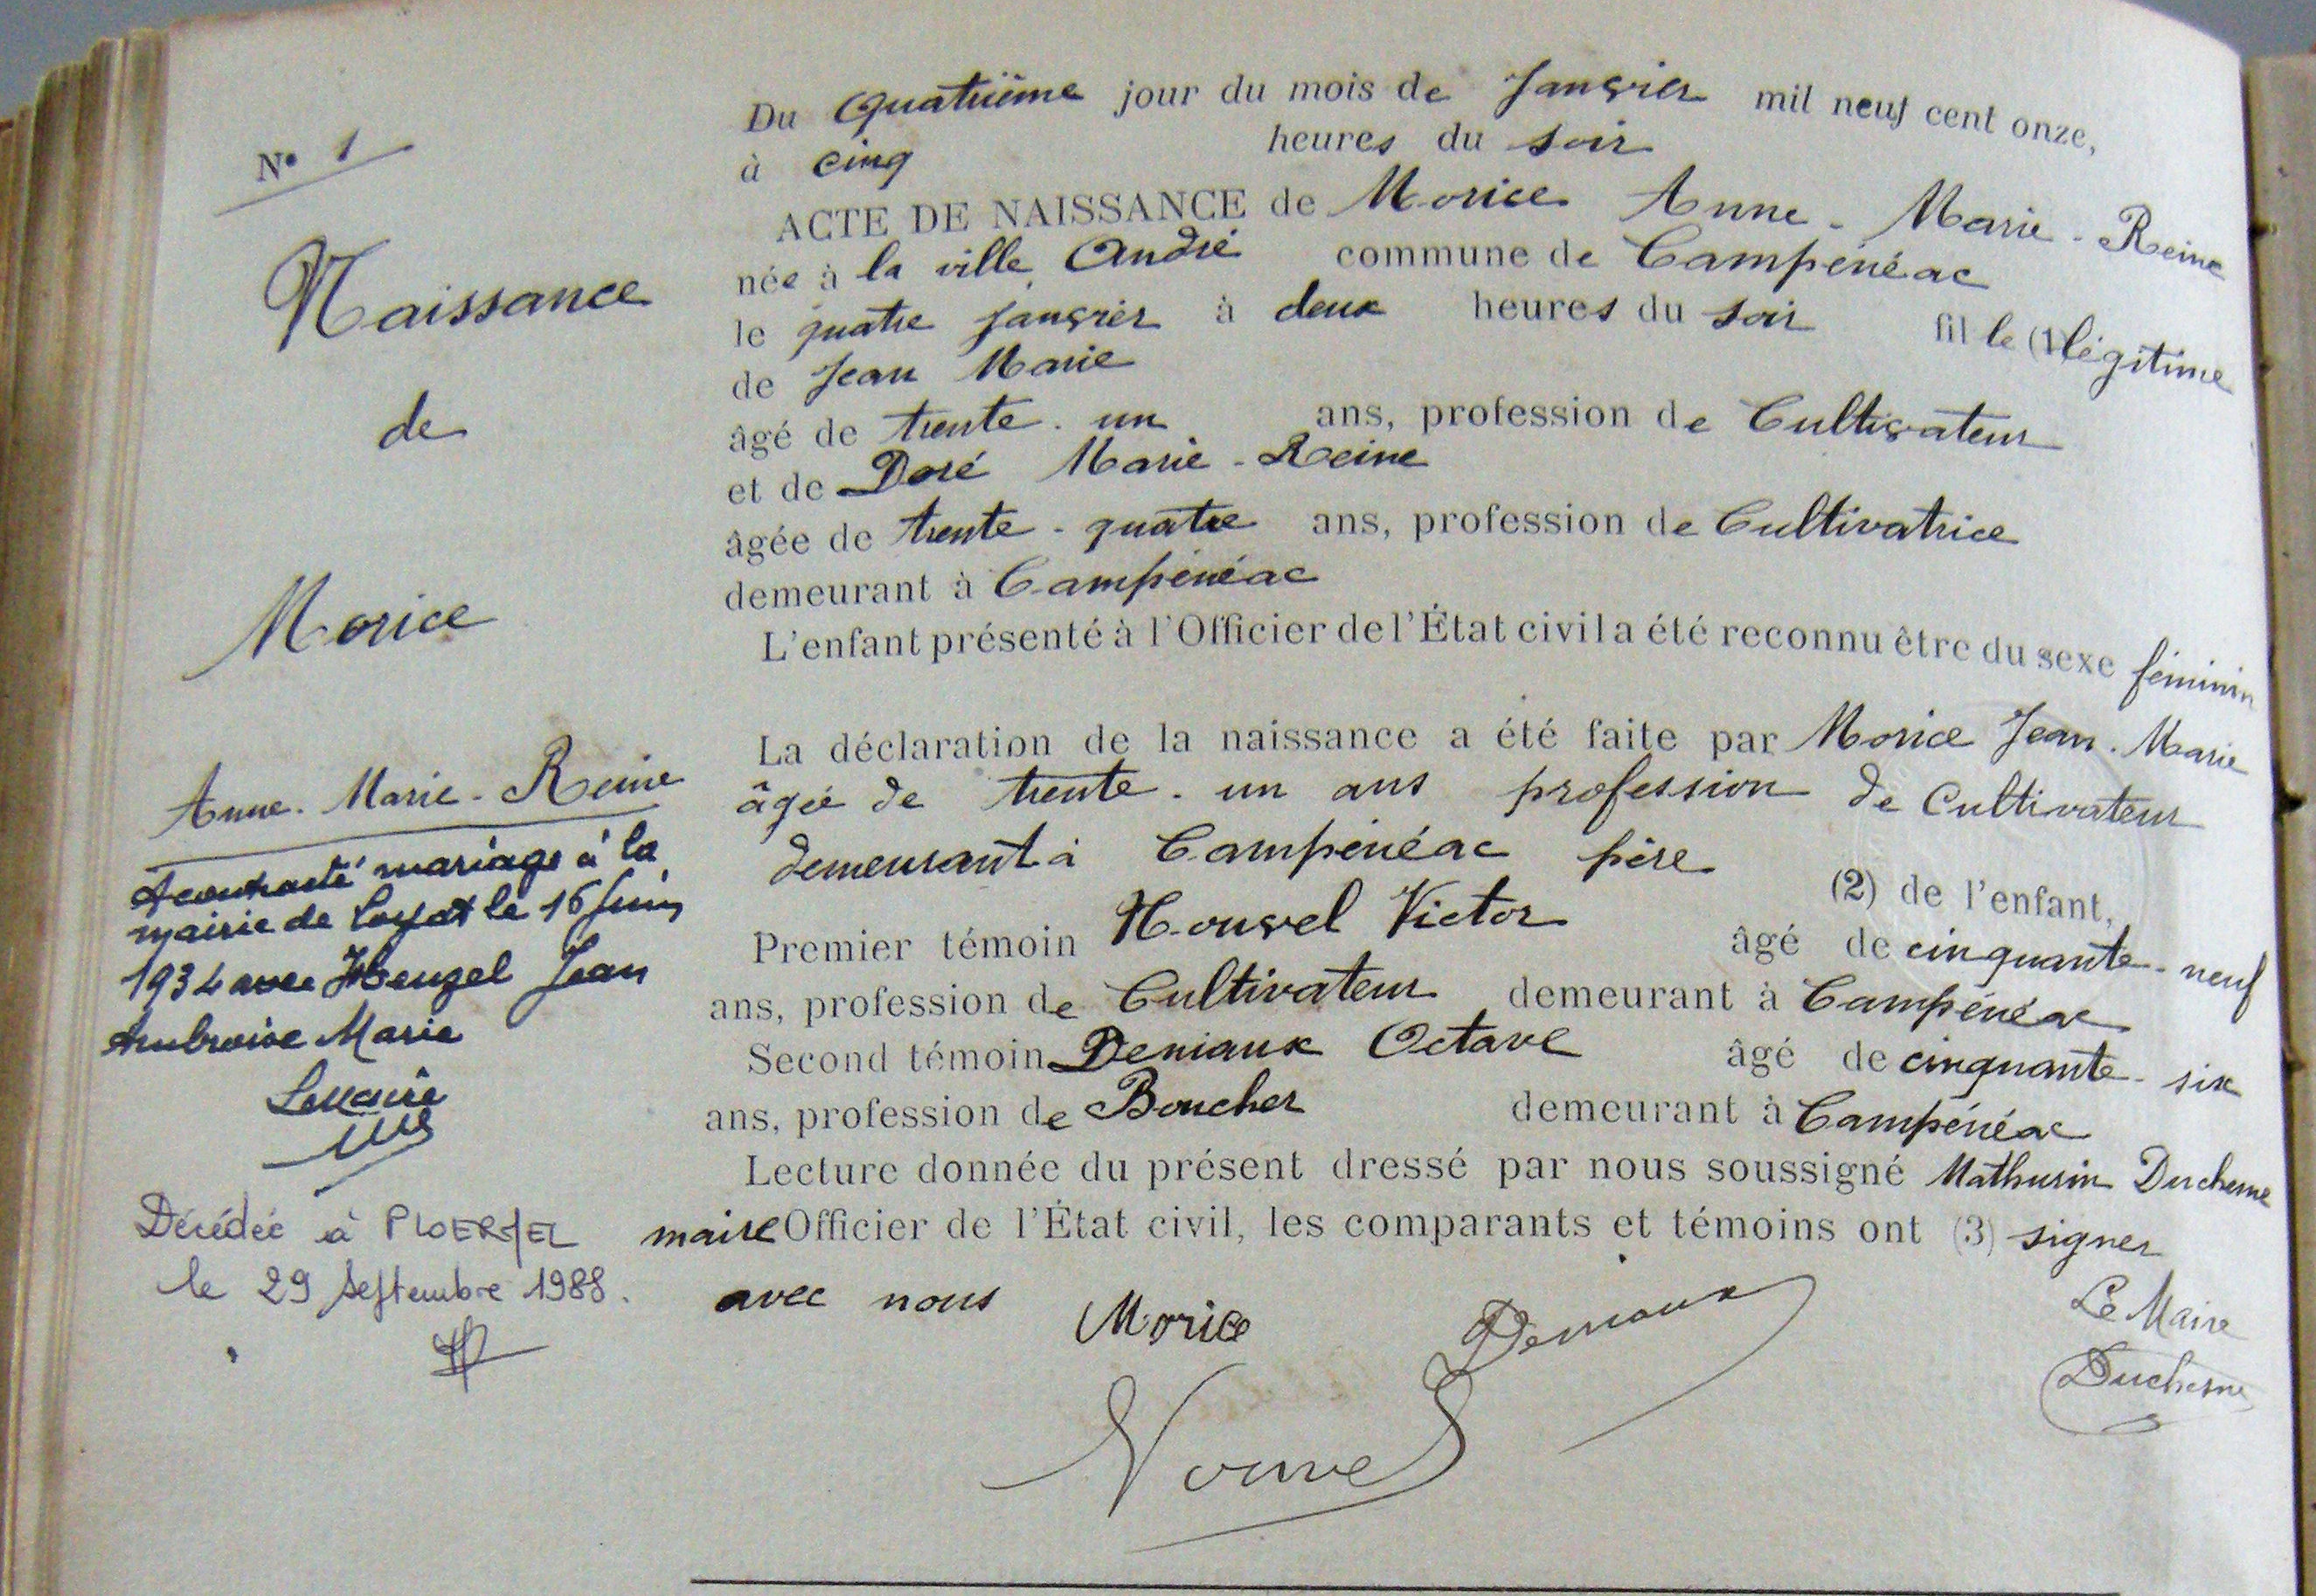 N° 1
Naissance
de
Morice
Anne-Marie-Reine
A contracté mariage à la
mairie de Loyat le 16 Juin
1934 avec Henzel Jean
Ambroise Marie
Le Maire
Décédée à PLOERMEL
le 29 septembre 1988.
Du Quatrième jour du mois de Janvier mil neuf cent onze,
à cinq heures du soir
ACTE DE NAISSANCE de Morice Anne-Marie-Reine
née à la ville André commune de Campénéac
le quatre janvier à deux heures du soir fille (1) légitime
de Jean Marie
âgé de trente-un ans, profession de Cultivateur
et de Doré Marie-Reine
âgée de trente-quatre ans, profession de Cultivatrice
demeurant à Campénéac
L'enfant présenté à l'Officier de l'État civil a été reconnu être du sexe féminin
La déclaration de la naissance a été faite par Morice Jean-Marie
âgée de trente-un ans profession de Cultivateur
demeurant à Campénéac père (2) de l'enfant,
Premier témoin Nouvel Victor âgé de cinquante-neuf
ans, profession de Cultivateur demeurant à Campénéac
Second témoin Deniaux Octave âgé de cinquante-six
ans, profession de Boucher demeurant à Campénéac
Lecture donnée du présent dressé par nous soussigné Mathurin Duchesne
maire Officier de l'État civil, les comparants et témoins ont (3) signer
avec nous
Morice Deniaux Le Maire
Nouvel Duchesne